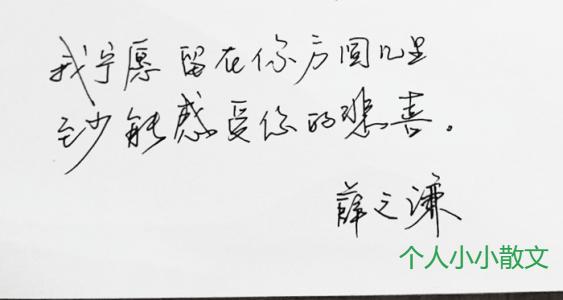 我宁愿留在你方圆几里
至少能感受你的悲喜。
薛之谦
个人小小散文